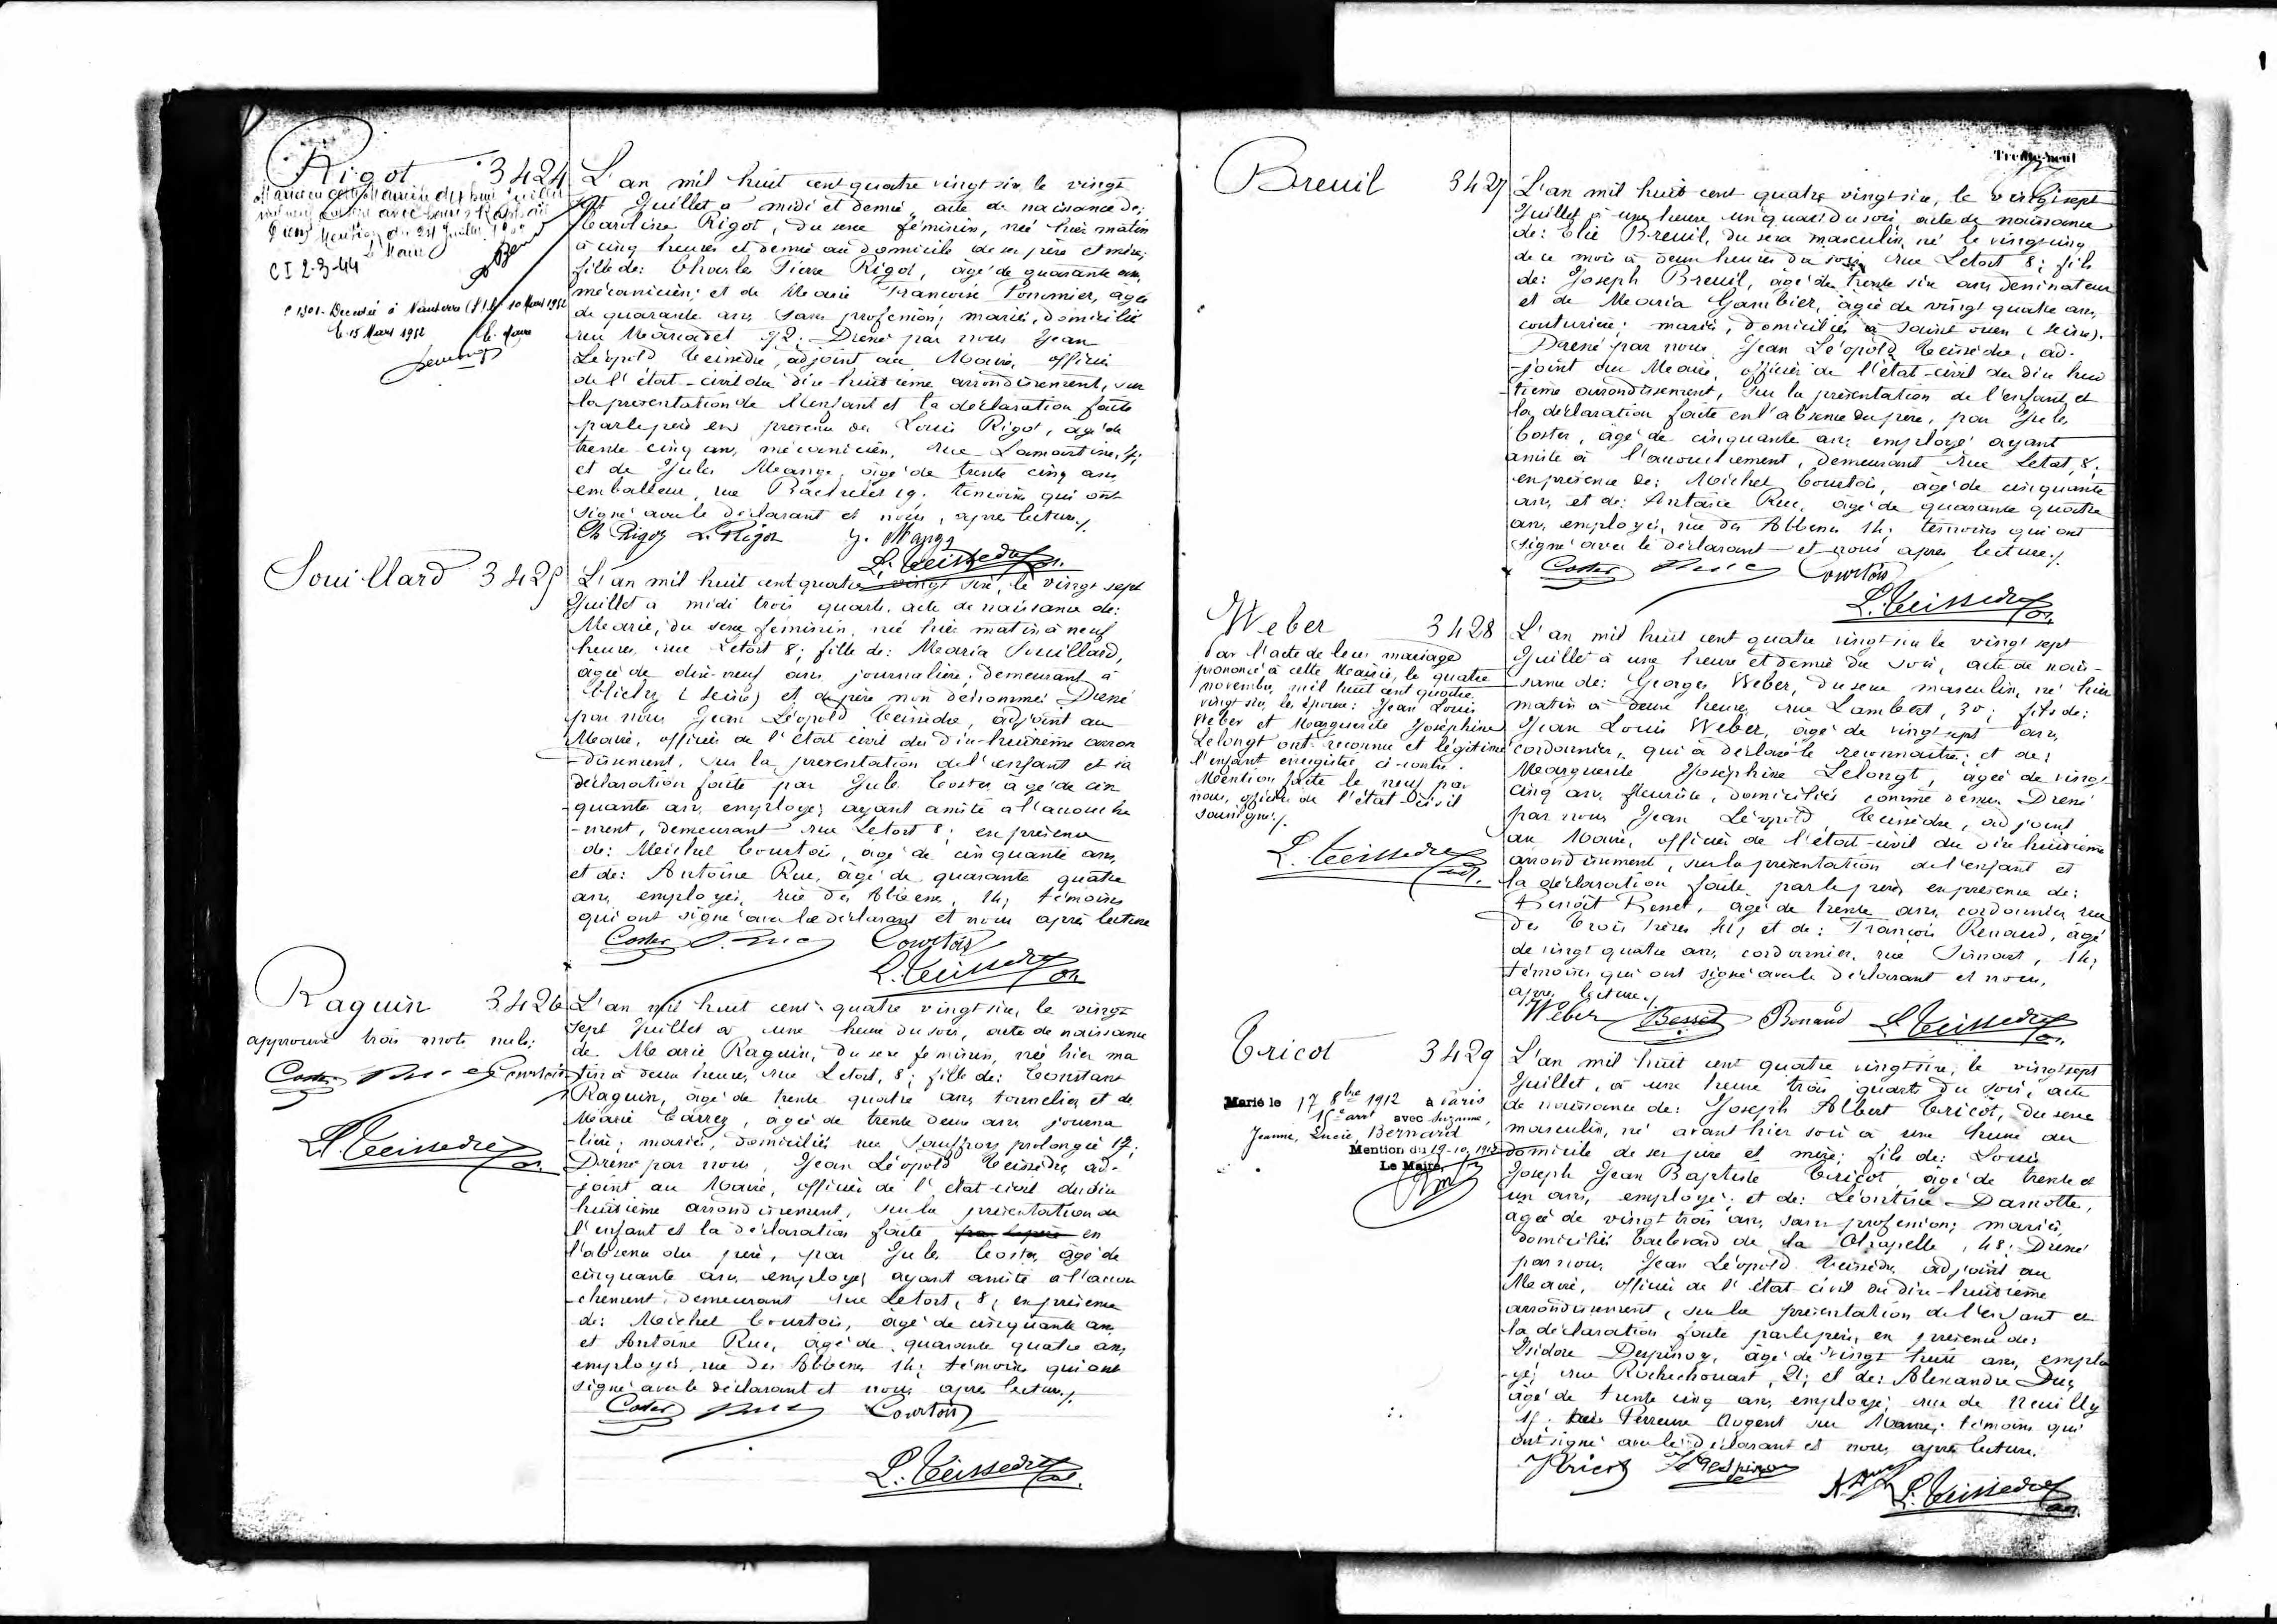 Rigot 3424
CI 2-3-44
10 Mars 1952
Le 15 Mars 1952
L'an mil huit cent quatre vingt six, le vingt
sept Juillet à midi et demie, acte de naissance de:
Caroline Rigot, du sexe féminin, née hier matin
à cinq heures et demie au domicile de ses père et mère;
fille de: Charles Pierre Rigot, âgé de quarante ans,
mécanicien; et de Marie Françoise Pommier, âgée
de quarante ans, sans profession; mariés, domiciliés
rue Marcadet 92. Dressé par nous Jean
Léopold Teissèdre, adjoint au Maire, officier
de l'état-civil du dix-huitième arrondissement, sur
la présentation de l'enfant et la déclaration faite
par le père en présence de Louis Rigot, âgé de
trente cinq ans, mécanicien, rue Lamartine, 4;
et de Jules Mange, âgé de trente cinq ans,
emballeur, rue Bachelet 19. témoins qui ont
signé avec le déclarant et nous, après lecture./.
Ch Rigot L. Rigot J. Mange
L. Teissedre
Souillard 3425
L'an mil huit cent quatre vingt six, le vingt sept
Juillet à midi trois quarts, acte de naissance de:
Marie, du sexe féminin, née hier matin à neuf
heures, rue Letort 8; fille de: Maria Souillard,
âgée de dix-neuf ans, journalière, demeurant à
Clichy (Seine) et de père non dénommé. Dressé
par nous Jean Léopold Teissèdre, adjoint au
Maire, officier de l'état civil du dix-huitième arron
-dissement, sur la présentation de l'enfant et la
déclaration faite par Jules Coster, âgé de cin
-quante ans, employé, ayant assisté à l'accouche
-ment, demeurant rue Letort 8; en présence
de: Michel Courtois, âgé de cinquante ans,
et de: Antoine Rue, âgé de quarante quatre
ans, employés, rue des Abbesses, 14; témoins
qui ont signé avec le déclarant et nous après lecture
Coster Rue Courtois
L. Teissedre
Raguin 3426
approuvé trois mots nuls:
Coster Rue Courtois
L. Teissedre
L'an mil huit cent quatre vingt six, le vingt
sept Juillet à une heure du soir, acte de naissance
de Marie Raguin, du sexe féminin, née hier ma
tin à deux heures, rue Letort, 8; fille de: Constant
Raguin, âgé de trente quatre ans, tonnelier et de
Marie Carrez, âgée de trente deux ans, journa
-lière; mariés, domiciliés rue Sauffroy prolongée 17;
Dressé par nous, Jean Léopold Teissèdre, ad-
-joint au Maire, officier de l'état-civil du dix
huitième arrondissement, sur la présentation de
l'enfant et la déclaration faite par le père en
l'absence du père, par Jules Coster, âgé de
cinquante ans, employé, ayant assisté à l'accou
-chement, demeurant rue Letort, 8, en présence
de: Michel Courtois, âgé de cinquante ans,
et Antoine Rue, âgé de quarante quatre ans,
employés, rue des Abbesses 14; témoins qui ont
signé avec le déclarant et nous après lecture./.
Coster Rue Courtois
L. Teissedre
Trente-neuf
Breuil 3427
L'an mil huit cent quatre vingt-six, le vingt sept
Juillet à une heure un quart du soir, acte de naissance
de: Elie Breuil, du sexe masculin, né le vingt-cinq
de ce mois à deux heures du soir, rue Letort 8; fils
de: Joseph Breuil, âgé de trente six ans, dessinateur
et de Maria Gambier, âgée de vingt quatre ans,
couturière; mariés, domiciliés à Saint ouen (Seine).
Dressé par nous, Jean Léopold Teissèdre, ad-
-joint au Maire, officier de l'état-civil du dix hui
tième arrondissement, sur la présentation de l'enfant et
la déclaration faite en l'absence du père, par Jules
Coster, âgé de cinquante ans, employé ayant
assisté à l'accouchement, demeurant rue Letort, 8;
en présence de: Michel Courtois, âgé de cinquante
ans, et de: Antoine Rue, âgé de quarante quatre
ans, employés, rue des Abbesses 14; témoins qui ont
signé avec le déclarant et nous après lecture./.
Coster Rue Courtois
L. Teissedre
Weber 3428
Par l'acte de leur mariage
prononcé à cette Mairie, le quatre
novembre, mil huit cent quatre
vingt six, les époux: Jean Louis
Weber et Marguerite Joséphine
Lelongt ont reconnu et légitimé
l'enfant enregistré ci-contre.
Mention faite le neuf par
nous, officier de l'état-civil
soussigné./.
L. Teissedre
L'an mil huit cent quatre vingt six le vingt sept
Juillet à une heure et demie du soir, acte de nais-
-sance de: Georges Weber, du sexe masculin, né hier
matin à deux heures, rue Lambert, 30; fils de:
Jean Louis Weber, âgé de vingt sept ans,
cordonnier, qui a déclaré le reconnaître; et de:
Marguerite Joséphine Lelongt, âgée de vingt
cinq ans, fleuriste, domiciliés comme dessus. Dressé
par nous Jean Léopold Teissèdre, adjoint
au Maire, officier de l'état-civil du dix huitième
arrondissement, sur la présentation de l'enfant et
la déclaration faite par le père en présence de:
Benoît Besset, âgé de trente ans, cordonnier, rue
des Trois frères 41; et de: François Renaud, âgé
de vingt quatre ans, cordonnier, rue Simart, 14;
témoins qui ont signé avec le déclarant et nous,
après lecture./.
Weber Besset Renaud L. Teissedre
Tricot 3429
Marié le 17 8bre 1912 à Paris
avec Suzanne,
Jeanne, Lucie, Bernard
Mention du 19-10, 1912
Le Maire,
L'an mil huit cent quatre vingt-six, le vingt sept
Juillet, à une heure trois quarts du soir, acte
de naissance de: Joseph Albert Tricot, du sexe
masculin, né avant hier soir à une heure au
domicile de ses père et mère; fils de: Louis
Joseph Jean Baptiste Tricot, âgé de trente et
un ans, employé; et de: Léontine Damotte,
âgée de vingt trois ans, sans profession; mariés,
domiciliés boulevard de la Chapelle, 48; Dressé
par nous, Jean Léopold Teissèdre adjoint au
Maire, officier de l'état-civil du dix-huitième
arrondissement, sur la présentation de l'enfant et
la déclaration faite par le père, en présence de:
Isidore Despinoy, âgé de vingt huit ans, emplo
-yé; rue Rochechouart, 21; et de: Alexandre Duc,
âgé de trente cinq ans, employé, rue de Neuilly
Perreux Nogent sur Marne; témoins qui
ont signé avec le déclarant et nous, après lecture.
Tricot Despinoy
L. Teissedre